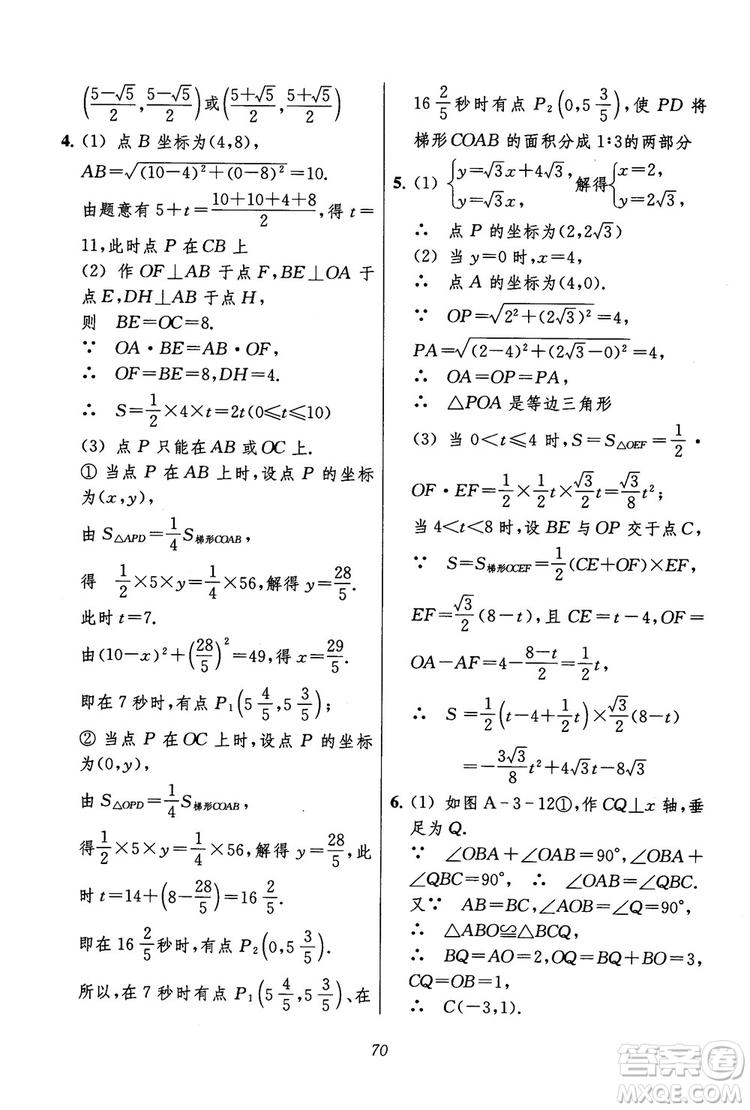 (5-√5/2, 5-√5/2)或(5+√5/2, 5+√5/2)
4. (1) 点 B 坐标为(4,8),
AB=√((10-4)²+(0-8)²)=10.
由题意有 5+t=(10+10+4+8)/2,得 t=
11,此时点 P 在 CB 上
(2) 作 OF⊥AB 于点 F,BE⊥OA 于
点 E,DH⊥AB 于点 H,
则 BE=OC=8.
∵ OA·BE=AB·OF,
∴ OF=BE=8,DH=4.
∴ S=1/2×4×t=2t(0≤t≤10)
(3) 点 P 只能在 AB 或 OC 上.
① 当点 P 在 AB 上时,设点 P 的坐标
为(x,y),
由 S△APD=1/4 S梯形COAB,
得 1/2×5×y=1/4×56,解得 y=28/5.
此时 t=7.
由(10-x)²+(28/5)²=49,得 x=29/5.
即在 7 秒时,有点 P₁(5 4/5,5 3/5);
② 当点 P 在 OC 上时,设点 P 的坐标
为(0,y),
由 S△OPD=1/4 S梯形COAB,
得 1/2×5×y=1/4×56,解得 y=28/5,此
时 t=14+(8-28/5)=16 2/5.
即在 16 2/5 秒时,有点 P₂(0,5 3/5).
所以,在 7 秒时有点 P₁(5 4/5,5 3/5)、在
16 2/5 秒时有点 P₂(0,5 3/5),使 PD 将
梯形 COAB 的面积分成 1∶3 的两部分
5. (1) {y=√3x+4√3, y=√3x, 解得{x=2, y=2√3,
∴ 点 P 的坐标为(2,2√3)
(2) 当 y=0 时,x=4,
∴ 点 A 的坐标为(4,0).
∵ OP=√(2²+(2√3)²)=4,
PA=√((2-4)²+(2√3-0)²)=4,
∴ OA=OP=PA,
∴ △POA 是等边三角形
(3) 当 0<t≤4 时,S=S△OEF=1/2·
OF·EF=1/2×1/2t×√3/2t=√3/8t²;
当 4<t<8 时,设 BE 与 OP 交于点 C,
∵ S=S梯形OCEF=1/2(CE+OF)×EF,
EF=√3/2(8-t),且 CE=t-4,OF=
OA-AF=4-(8-t)/2=1/2t,
∴ S=1/2(t-4+1/2t)×√3/2(8-t)
=-3√3/8t²+4√3t-8√3
6. (1) 如图 A-3-12①,作 CQ⊥x 轴,垂
足为 Q.
∵ ∠OBA+∠OAB=90°,∠OBA+
∠QBC=90°, ∴ ∠OAB=∠QBC.
又∵ AB=BC,∠AOB=∠Q=90°,
∴ △ABO≌△BCQ,
∴ BQ=AO=2,OQ=BQ+BO=3,
CQ=OB=1,
∴ C(-3,1).
70
答案圈
MXQE.COM